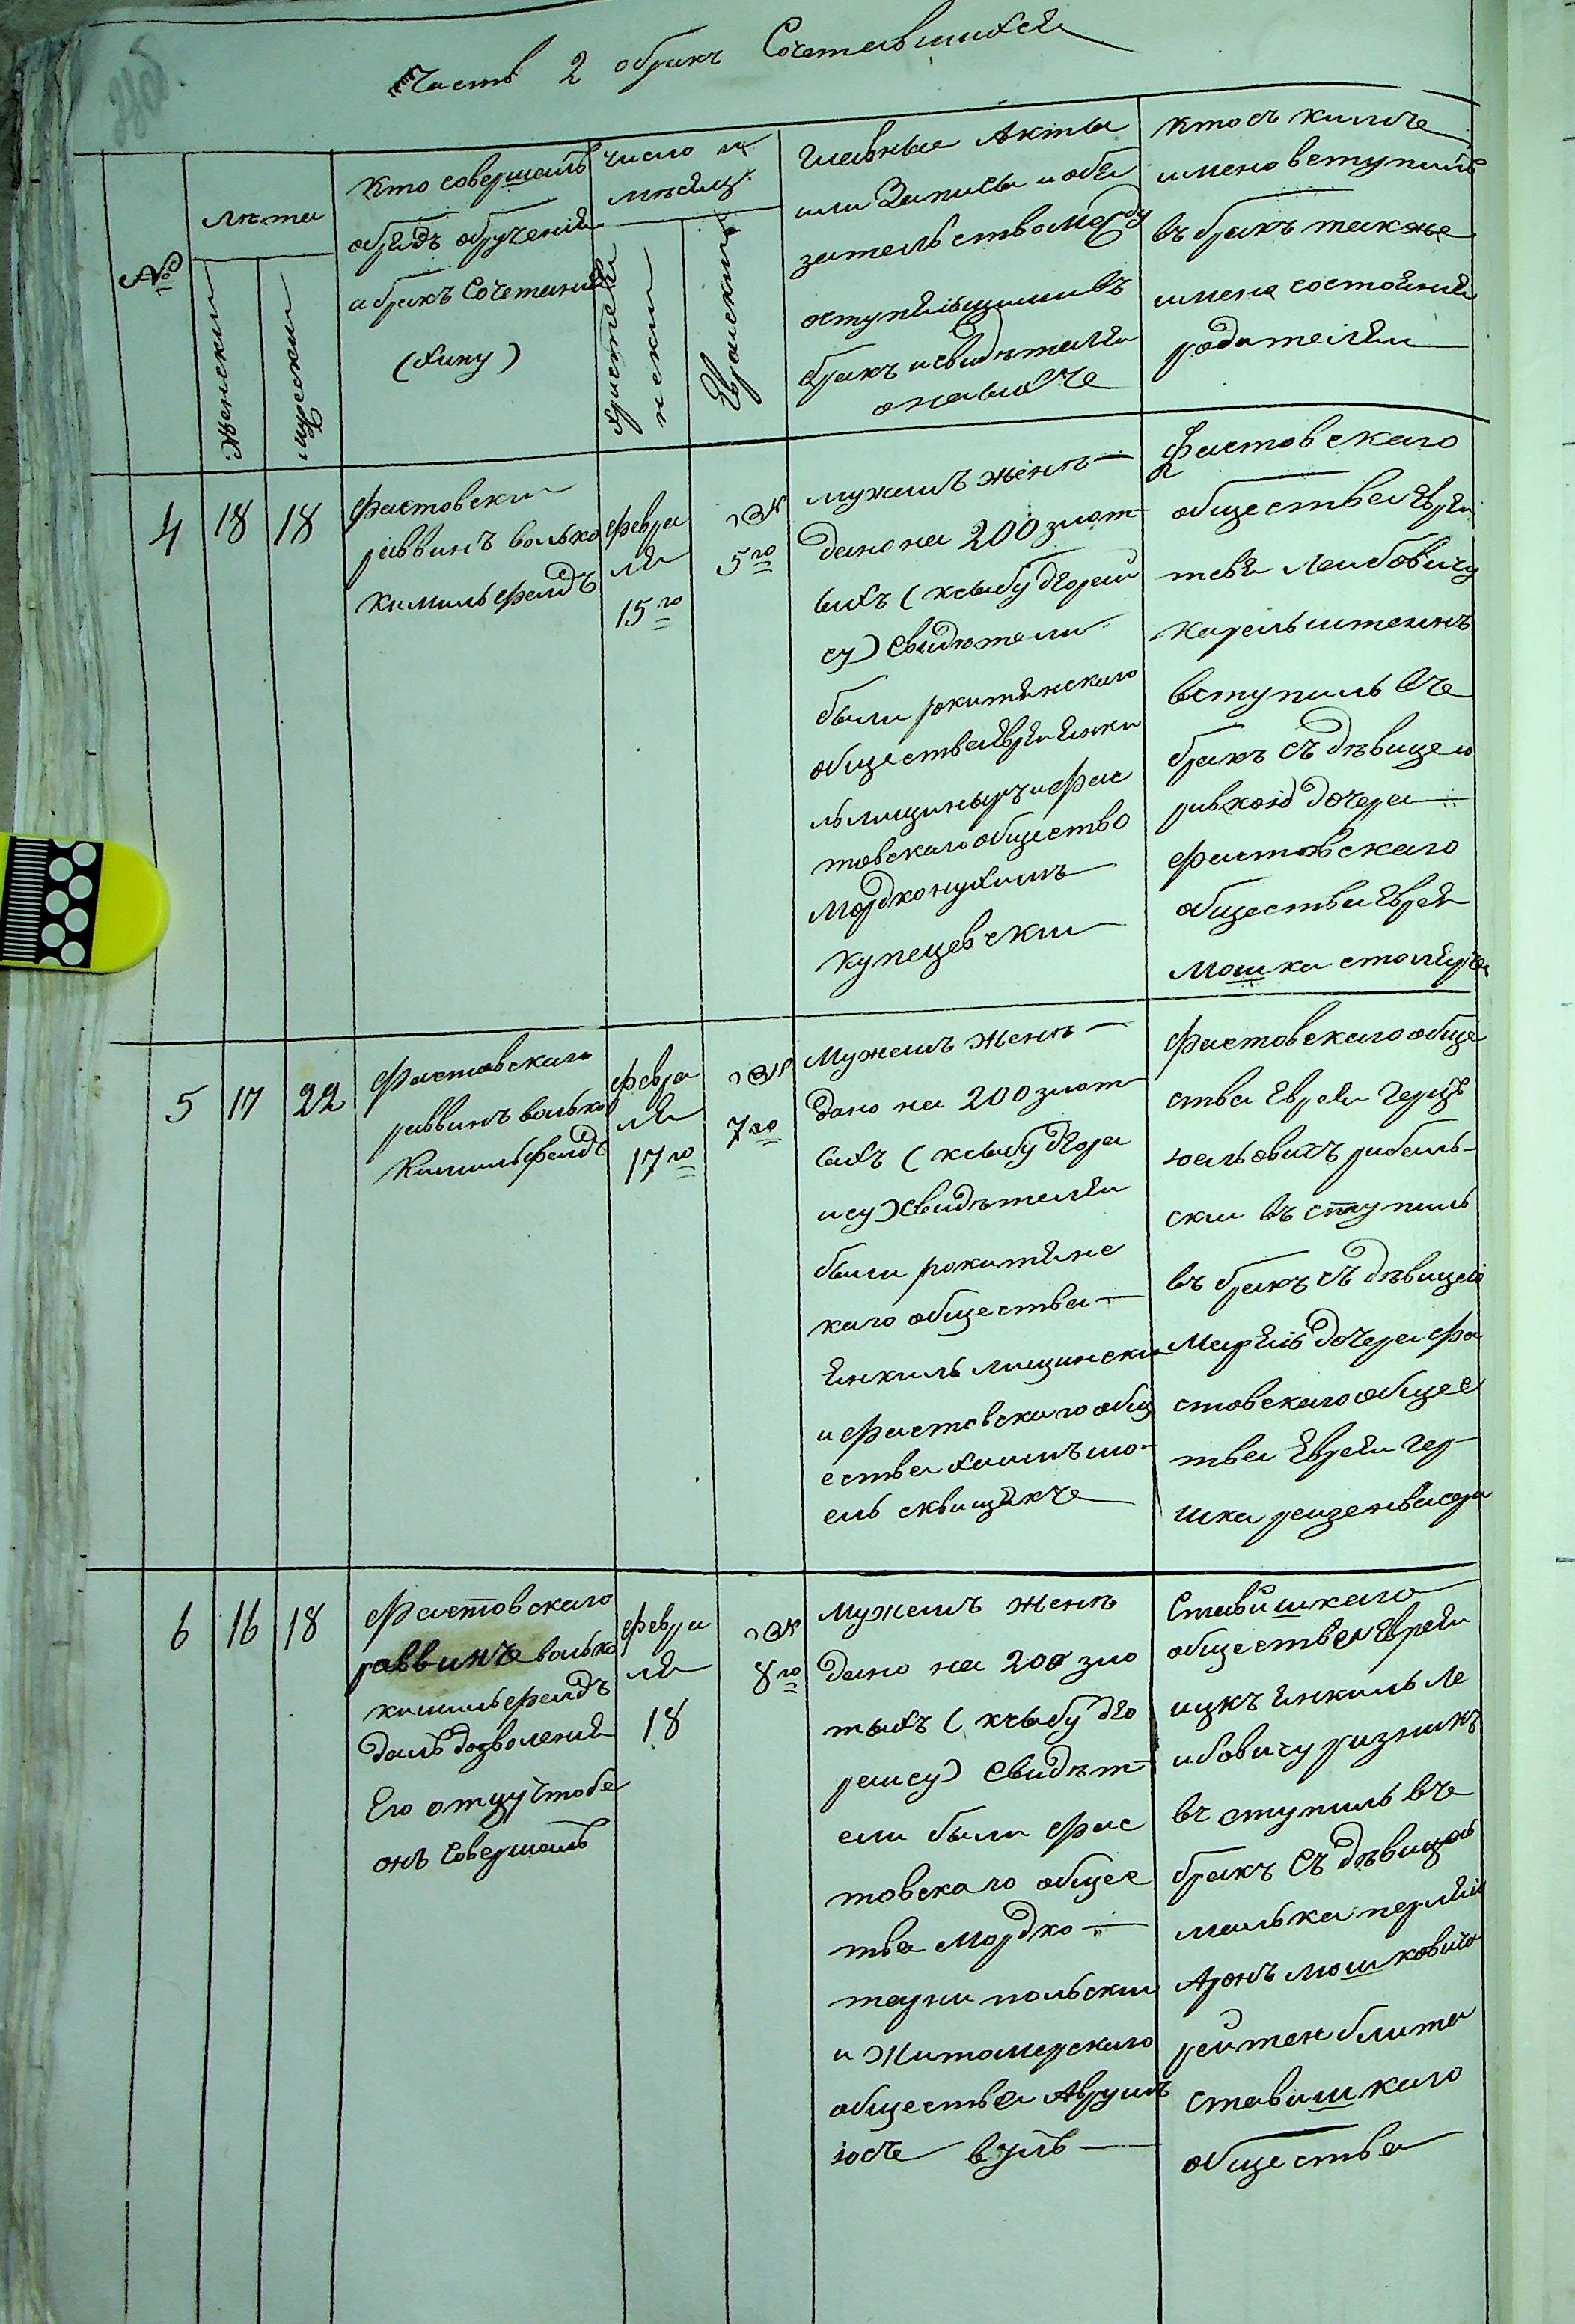 Часть 2 о бракъ Сочетавшихся
№
лѣта
Женски
мужески
Кто совершалъ
обрядъ обрученія
и бракъ Сочетанія
(хупу)
число и
мѣсяц
христія
нски
Евреискій
Главные Акты
или Записи и обя
зательство между
вступившими въ
бракъ и свидѣтели
оныхъ
Кто съ кимъ
имено вступилъ
въ бракъ также
имена состоянія
родителеи
4
18
18
Фастовски
раввинъ волько
кимельфелдъ
Февра
ля
15го
אדר
5го
мужемъ женѣ
дано на 200 злот
ыхъ (ксыбу деорай
су) Свидѣтели
были рокитянского
общества Еврея Янки
ль лищинеръ и Фас
товского общество
Мордко нухимъ
купецевски
Фастовскаго
общества Еврей
тевя Леибовичу
Карельштеинъ
вступилъ въ
бракъ съ дѣвицею
ривкой дочера
Фастовскаго
общества Еврея
Мошка столяра
5
17
22
Фастовскаго
раввинъ волько
Кимельфелдъ
Февра
ля
17го
אדר
7го
Мужемъ женѣ
дано на 200 злот
ыхъ (ксыбу деора
ису) Свидѣтели
были рокитянс
каго общества
Янкиль лищински
и Фастовскаго общ
ества хаимъ мо-
ель сквищякъ
Фастовскаго обще
ства Еврея Герцъ
юельовичъ рабель-
ски въ ступилъ
въ бракъ съ дѣвицей
Марямъ дочера Фа
стовскаго общес
тва Еврея Гер-
шка реизенвасера
6
16
18
Фастовскаго
раввинъ волько
кимельфелдъ
далъ дозволения
Его отцу чтобе
онъ совершалъ
Февра
ля
18
אדר
8го
Мужемъ женѣ
дано на 200 зло
тыхъ (ксыбу део
реису) Свидѣт-
ели были Фас
товскаго общес
тва Мордко
терни польски
и Житомерского
общества Аврумъ
юсь вулъ
Ставишкаго
общества Еврея
ицкъ Янкиль Ле
ибовичу ризникъ
въ ступилъ въ
бракъ съ дѣвицей
малька перля
Аронъ мошковича
рейтенблита
ставишкаго
общества